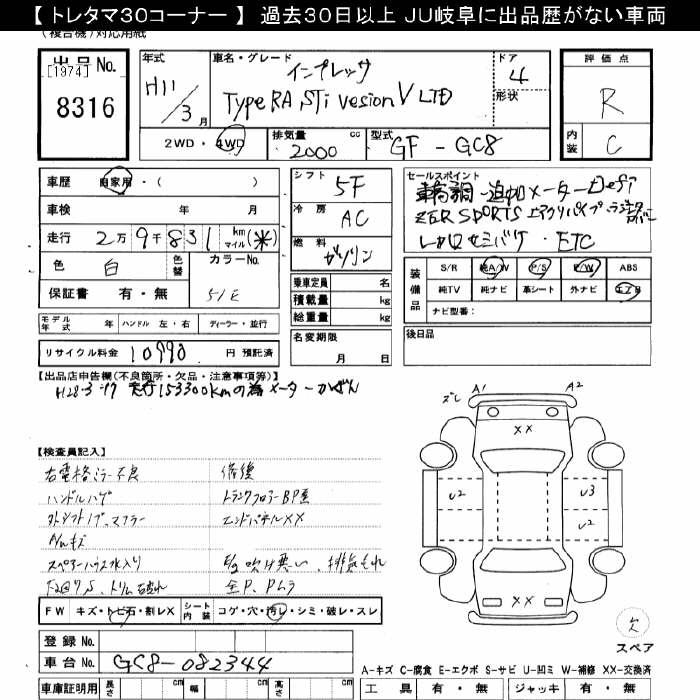 【 トレタマ30コーナー 】 過去30日以上 JU岐阜に出品歴がない車両
(複合機)対応用紙
出 品 No.
[1974]
8316
年式
H11/3 月
車名・グレード
インプレッサ
TypeRA STi vesion V LTD
ドア
4
形状
評 価 点
R
内装
C
2WD・4WD
排気量 cc
2000
型式
GF - GC8
車歴 自家用・( )
車検 年 月
走行 2万9千831 km マイル (※)
色 白
色替
カラーNo.
51E
保証書 有・無
シフト 5F
冷房 AC
燃料 ガソリン
乗車定員 名
積載量 kg
総重量 kg
セールスポイント
車高調 追加メーターDefi
ZERO SPORTS エアクリパイプ
レカロセミバケ・ETC
装備品
S/R 純A/W P/S P/W ABS
純TV 純ナビ 革シート 外ナビ エアB
ナビ型番:
モデル年式 年 ハンドル 左・右 ディーラー・並行
名変期限
月 日
後日品
リサイクル料金 10990 円 預託済
【出品店申告欄(不良箇所・欠品・注意事項等)】
H28-3 走行153300kmの為メーターかいざん
ズレ A1 A2
XX
U2 U3
U2
XX
欠
スペア
【検査員記入】
右電格ミラー不良
ハンドルハゲ
外シフトノブ、マフラー
内ルキズ
スペアーハウス水入り
修復
トランクフロアーBP歪
エンドパネルXX
E/g吹け悪い、排気もれ
全P、Pムラ
FW キズ・トビ石・割レX
シート内装 コゲ・穴・汚レ・シミ・破レ・スレ
登録 No.
車台 No. GC8-082344
車庫証明用 長さ cm 幅 cm 高さ cm
A-キズ C-腐食 E-エクボ S-サビ U-凹ミ W-補修 XX-交換済
工 具 有・無 ジャッキ 有・無